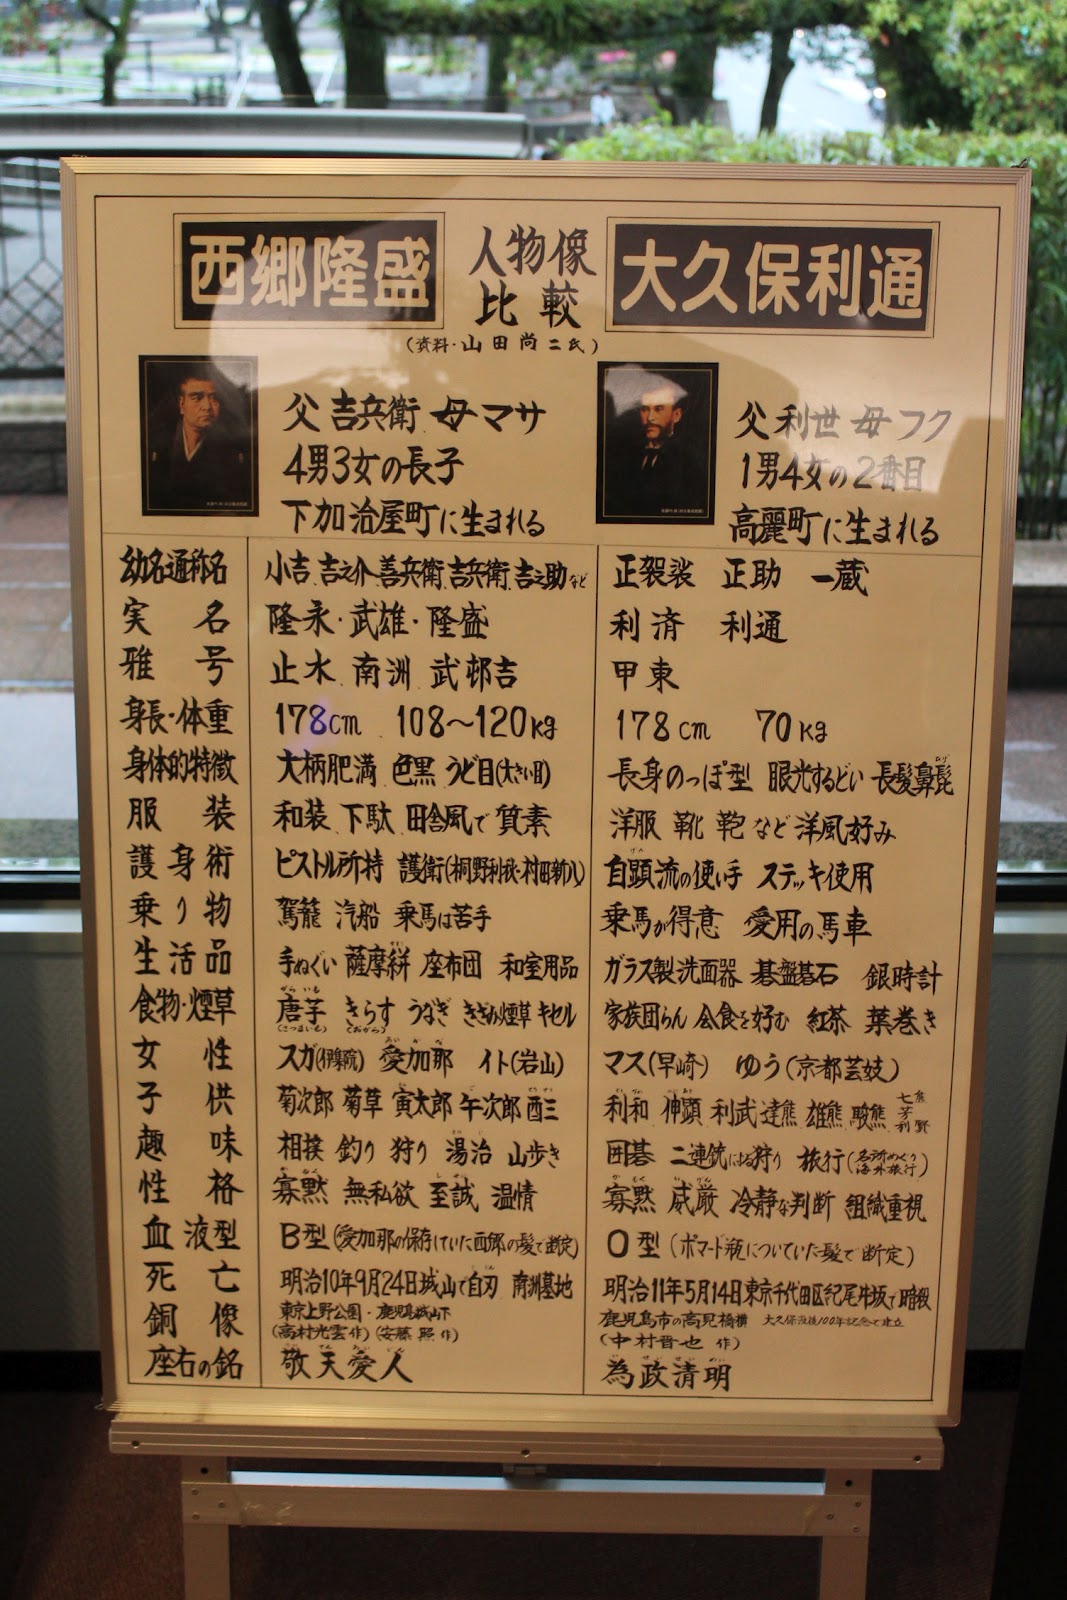 西郷隆盛 人物像比較 大久保利通
(資料・山田尚二氏)
父 吉兵衛 母マサ
4男3女の長子
下加治屋町に生まれる
父 利世 母 フク
1男4女の2番目
高麗町に生まれる
幼名通称名 小吉 吉之介 善兵衛 吉兵衛 吉之助など 正袈裟 正助 一蔵
実名 隆永・武雄・隆盛 利済 利通
雅号 止水 南洲 武邨吉 甲東
身長・体重 178cm 108〜120kg 178cm 70kg
身体的特徴 大柄肥満 色黒 うど目(大さい目) 長身のっぽ型 眼光するどい 長髪鼻髭
服装 和装 下駄 田舎風で質素 洋服 靴 鞄など洋風好み
護身術 ピストル所持 護衛(桐野利秋・村田新八) 自顕流の使い手 ステッキ使用
乗り物 駕籠 汽船 乗馬は苦手 乗馬が得意 愛用の馬車
生活品 手ぬぐい 薩摩絣 座布団 和室用品 ガラス製洗面器 碁盤碁石 銀時計
食物・煙草 唐芋(さつまいも) きらす(おから) うなぎ きざみ煙草 キセル 家族団らん 会食を好む 紅茶 葉巻き
女性 スガ(伊集院) 愛加那 イト(岩山) マス(早崎) ゆう(京都芸妓)
子供 菊次郎 菊草 寅太郎 午次郎 酉三 利和 伸顕 利武 達熊 雄熊 駿熊 七熊 芳 利賢
趣味 相撲 釣り 狩り 湯治 山歩き 囲碁 二連銃による狩り 旅行(名所めぐり 海外旅行)
性格 寡黙 無私欲 至誠 温情 寡黙 威厳 冷静な判断 組織重視
血液型 B型(愛加那の保存していた西郷の髪で断定) O型(ポマード瓶についていた髪で断定)
死亡 明治10年9月24日城山で自刃 南洲墓地 明治11年5月14日東京千代田区紀尾井坂で暗殺
銅像 東京上野公園・鹿児島城山下 鹿児島市の高見橋横 大久保没後100年記念で建立
(高村光雲 作) (安藤 照 作) (中村晋也 作)
座右の銘 敬天愛人 為政清明